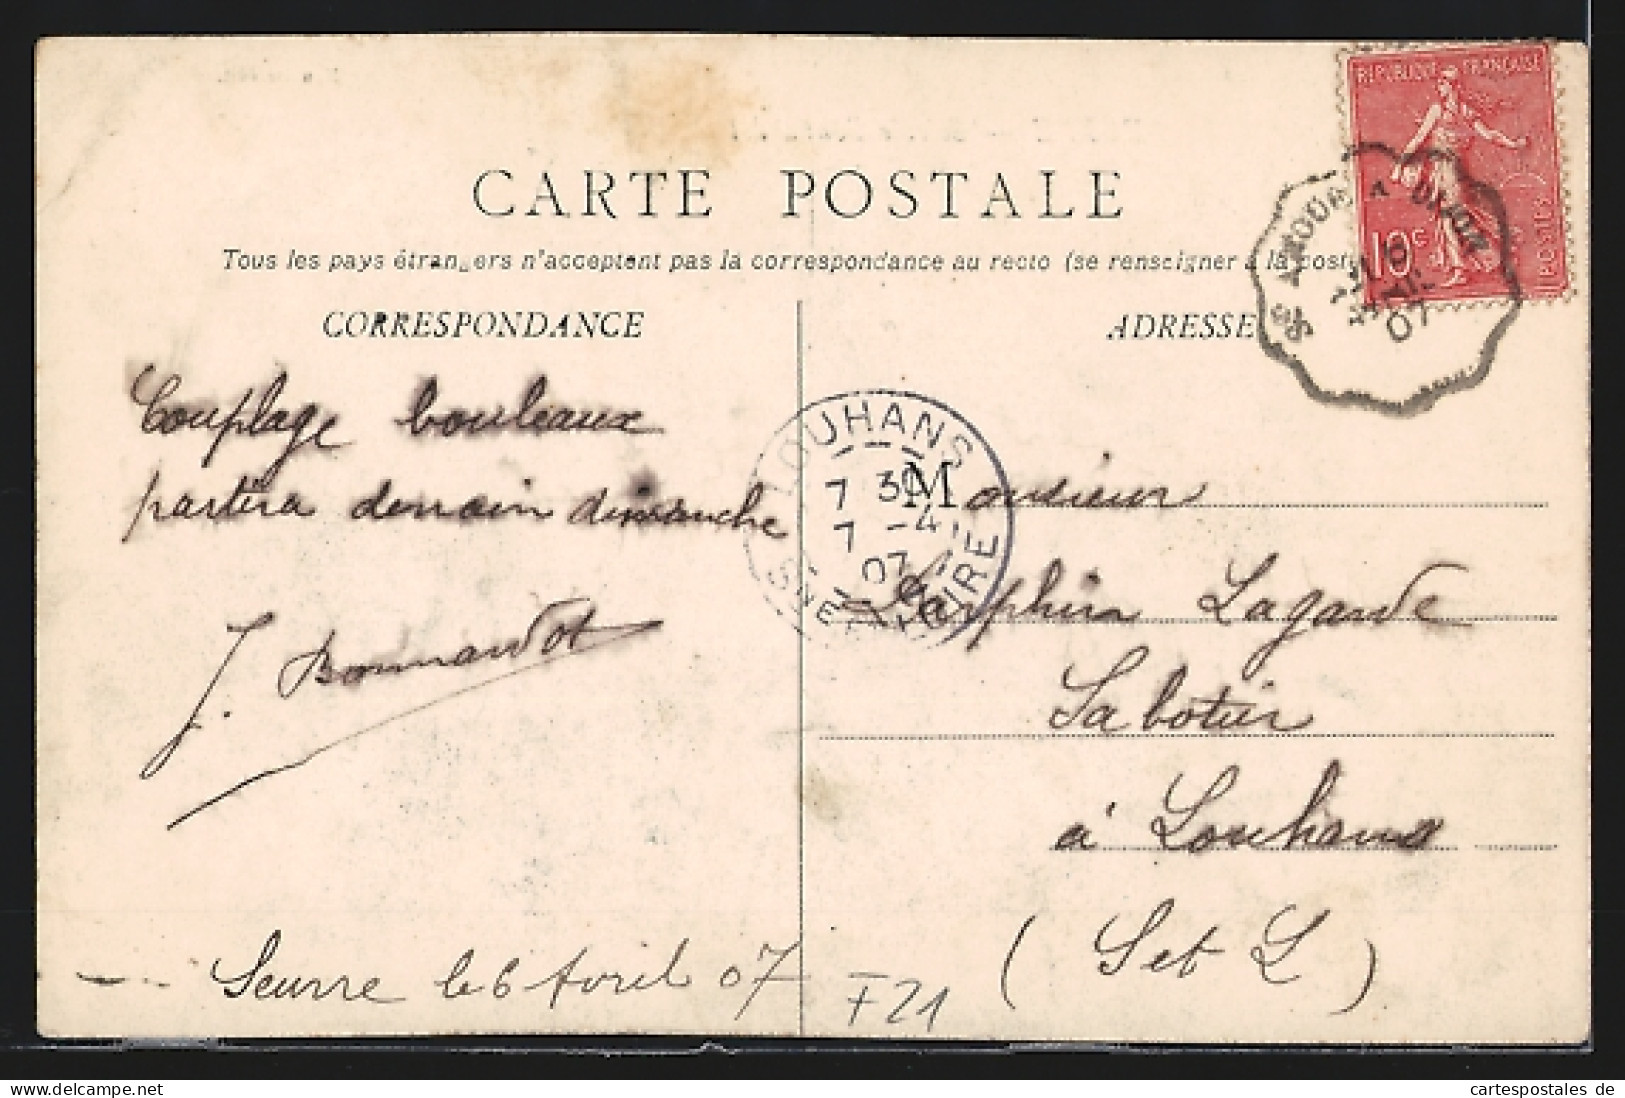 CARTE POSTALE
Tous les pays étrangers n'acceptent pas la correspondance au recto (se renseigner à la poste)
CORRESPONDANCE
ADRESSE
REPUBLIQUE FRANÇAISE
10 c
POSTES
ST AMOUR A DIJON
07
LOUHANS
7 30
7 -4
07
SNE ET LOIRE
Couplage bouleaux
partira demain dimanche
J. Bonnardot
Seurre le 6 Avril 07
Monsieur
Dauphin Lagarde
Sabotier
à Louhans
(S et L)
F21
cartespostales de